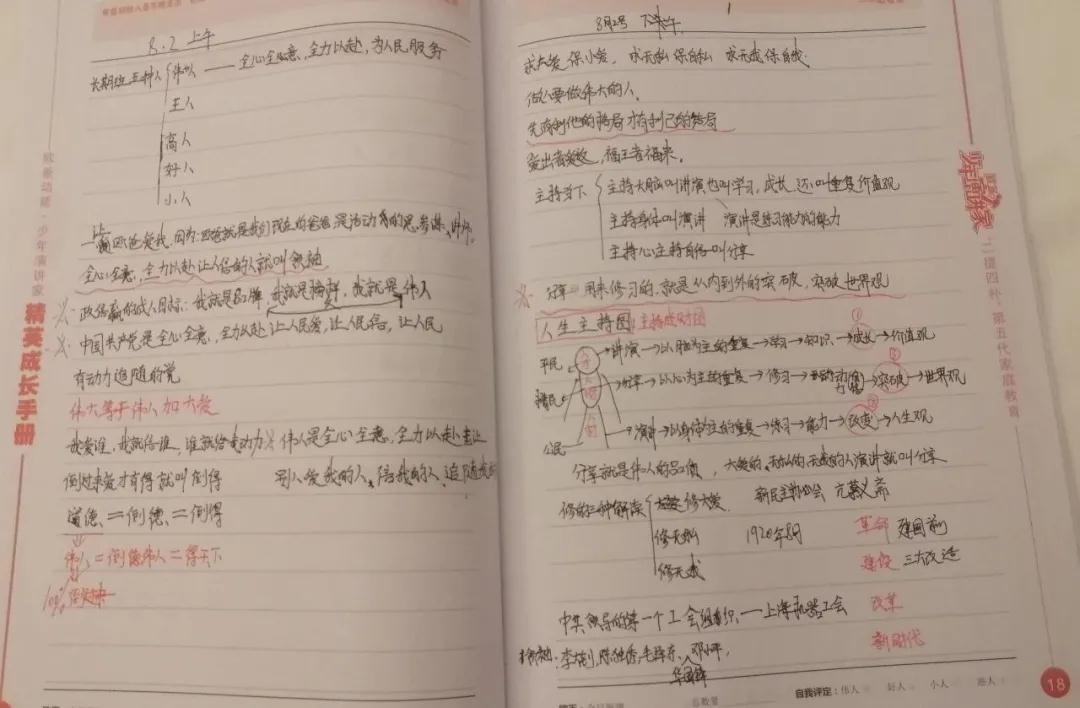 8.2 上午
长期班五种人 伟人 —— 全心全意，全力以赴，为人民服务
主人
高人
好人
小人
全心全意，全力以赴让人信的人就叫领袖
政信赢的成人目标：我就是品牌，我就是榜样，我就是伟人
中国共产党是全心全意，全力以赴让人民爱，让人民信，让人民
有动力追随的党
伟大等于伟人加大教
我爱谁，我就信谁，谁就给我动力 伟人是全心全意，全力以赴去让
倒过来爱才有得就叫倒得 别人爱我的人，信我的人，追随我的
道德 = 倒德 = 倒得
伟人 = 倒德伟人 = 得天下
100%
欧亚动能·少年演讲家
精英成长手册
8月2号 下午
求大爱保小爱，求无私保自私 求无我保自我
做人要做伟大的人
先有利他的格局才有利己的结局
爱出者爱返，福往者福来。
主持当下 主持大脑叫讲演也叫学习，成长 还叫重复价值观
主持身体叫演讲 演讲是练习能力的能力
主持心主持自信叫分享
分享 用来修习的，就是从内到外的突破，突破世界观
人生主持图：主持成财图
平民 讲演→以脑为主的重复→学习→知识→成长→价值观 ①
分享→以心为主的重复→修习→动力→突破→世界观 ②
公民 演讲→以身体为主的重复→练习→能力→改变→人生观 ③
分享就是伟人的品质，大爱的，无私的，无我的人演讲就叫分享
修的三种解读 大爱 修大爱 新民主
修无私 1920年8月 革命 建国前
修无我 建设 三大改造
中共领导的第一个工会组织——上海机器工会 改革
李大钊，陈独秀，毛泽东，邓小平， 新时代
华国锋
少年演讲家
二提四补·第五代家庭教育
自我评定：伟人 好人 小人
18